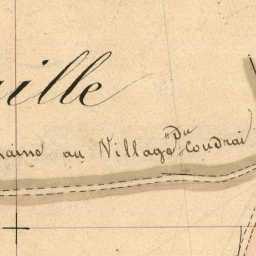 ille
au Village Du Coudrai